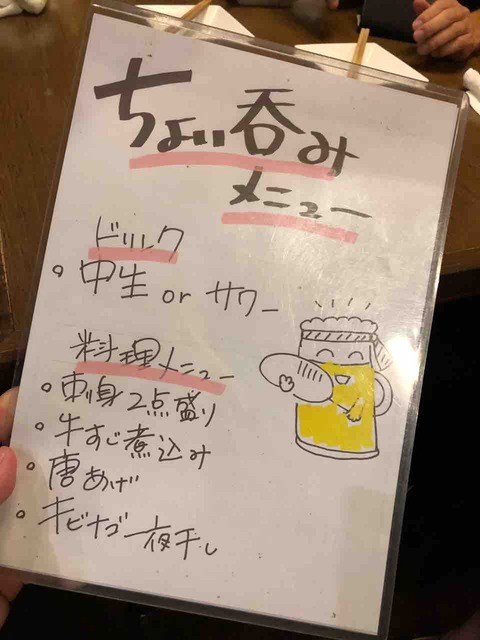 ちょい呑み
メニュー
ドリンク
。中生 or サワー
料理メニュー
。刺身2点盛り
。牛すじ煮込み
。唐あげ
。キビナゴ一夜干し